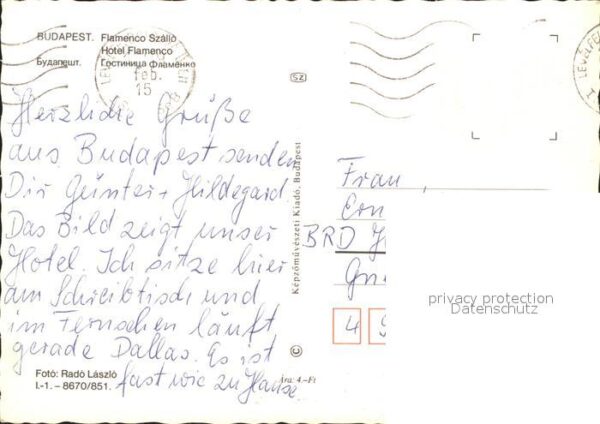 BUDAPEST. Flamenco Szálló
Hotel Flamenco
Будапешт. Гостиница Фламенко
feb.
15
SZ
Herzliche Grüße
aus Budapest senden
Dir Günter + Hildegard.
Das Bild zeigt unser
Hotel. Ich sitze hier
am Schreibtisch und
im Fernsehen läuft
gerade Dallas. Es ist
fast wie zu Hause.
Fotó: Radó László
I.-1. – 8670/851.
Ára: 4.–Ft
© Képzőművészeti Kiadó, Budapest
Frau
BRD
4
privacy protection
Datenschutz